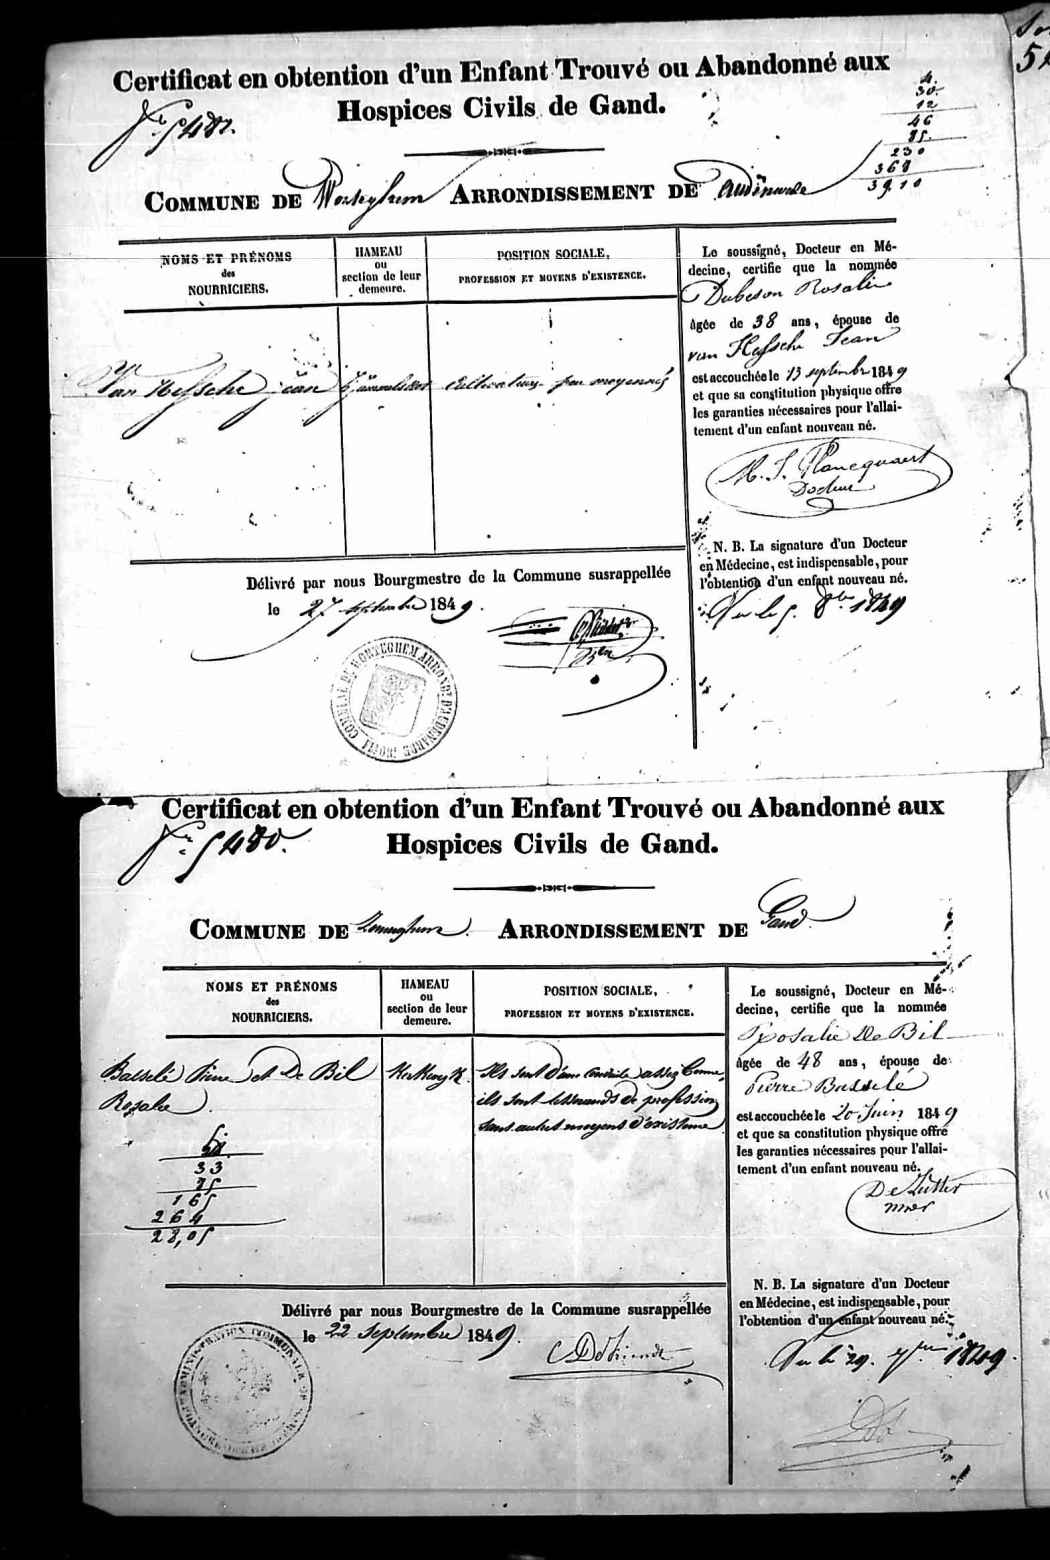 Certificat en obtention d'un Enfant Trouvé ou Abandonné aux
Hospices Civils de Gand.
4.
30
12
46
85.
230
368
39,10
COMMUNE DE ARRONDISSEMENT DE Audenarde
NOMS ET PRÉNOMS
des
NOURRICIERS.
HAMEAU
ou
section de leur
demeure.
POSITION SOCIALE,
PROFESSION ET MOYENS D'EXISTENCE.
Van Hessche jean
cultivateur peu moyennés
Le soussigné, Docteur en Mé-
decine, certifie que la nommée
Dubeson Rosalie
âgée de 38 ans, épouse de
van Hessche Jean
est accouchée le 13 septembre 1849
et que sa constitution physique offre
les garanties nécessaires pour l'allai-
tement d'un enfant nouveau né.
Plancquaert
Docteur
N. B. La signature d'un Docteur
en Médecine, est indispensable, pour
l'obtention d'un enfant nouveau né.
Vu le 5. 8bre 1849
Délivré par nous Bourgmestre de la Commune susrappellée
le 27 septembre 1849.
Certificat en obtention d'un Enfant Trouvé ou Abandonné aux
Hospices Civils de Gand.
No 5480.
COMMUNE DE ARRONDISSEMENT DE Gand
NOMS ET PRÉNOMS
des
NOURRICIERS.
HAMEAU
ou
section de leur
demeure.
POSITION SOCIALE,
PROFESSION ET MOYENS D'EXISTENCE.
Basselé Pierre et De Bil
Rosalie
Ils sont d'une conduite assez bonne,
ils sont tisserands de profession
sans autres moyens d'existence
33
85
165
264
28,05
Le soussigné, Docteur en Mé-
decine, certifie que la nommée
Rosalie De Bil
âgée de 48 ans, épouse de
Pierre Basselé
est accouchée le 20 Juin 1849
et que sa constitution physique offre
les garanties nécessaires pour l'allai-
tement d'un enfant nouveau né.
N. B. La signature d'un Docteur
en Médecine, est indispensable, pour
l'obtention d'un enfant nouveau né.
Vu le 29. 7bre 1849
Délivré par nous Bourgmestre de la Commune susrappellée
le 22 Septembre 1849.